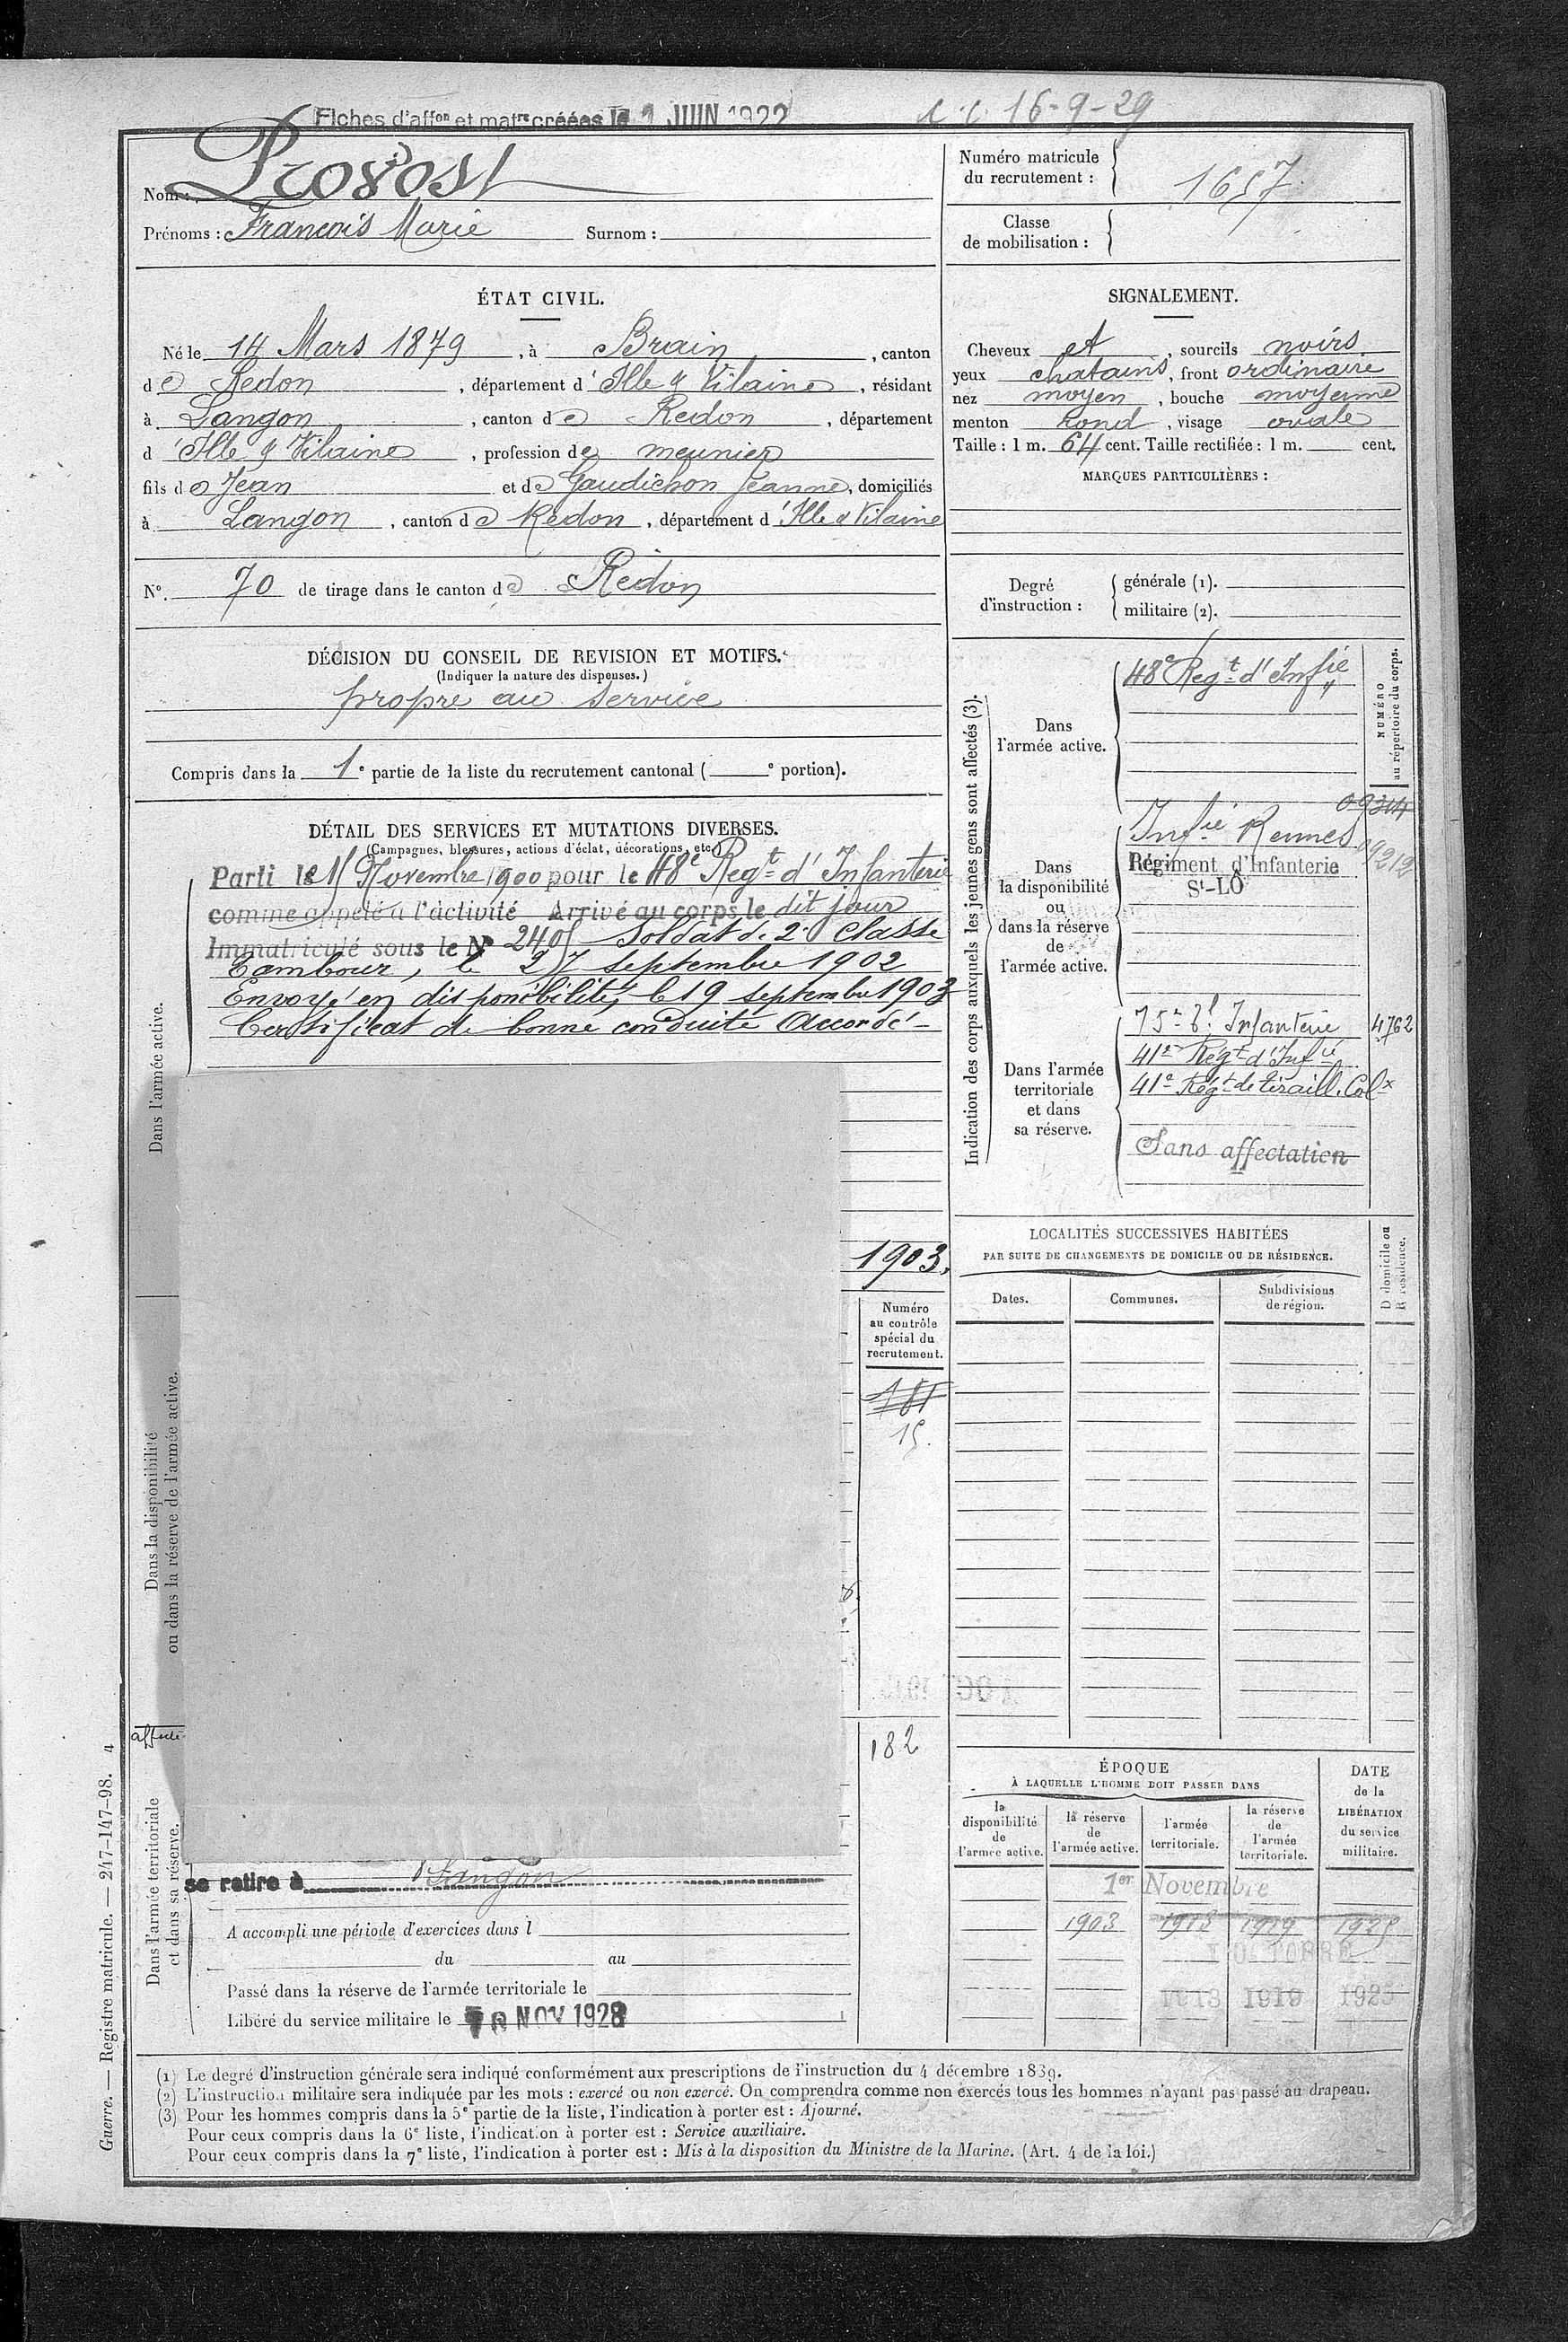 Fiches d'affon et matre créées le 1 JUIN 1922
16-9-29
Nom : Provost
Prénoms : François Marie Surnom :
Numéro matricule
du recrutement : 1657
Classe
de mobilisation :
ÉTAT CIVIL.
Né le 14 Mars 1879, à Brain, canton
de Redon, département d'Ille & Vilaine, résidant
à Langon, canton de Redon, département
d'Ille & Vilaine, profession de meunier
fils de Jean et de Gaudichon Jeanne, domiciliés
à Langon, canton de Redon, département d'Ille & Vilaine
N° 70 de tirage dans le canton de Redon
SIGNALEMENT.
Cheveux et, sourcils noirs
yeux chatains, front ordinaire
nez moyen, bouche moyenne
menton rond, visage ovale
Taille : 1 m. 64 cent. Taille rectifiée : 1 m. cent.
MARQUES PARTICULIÈRES :
Degré
d'instruction :
générale (1).
militaire (2).
DÉCISION DU CONSEIL DE REVISION ET MOTIFS.
(Indiquer la nature des dispenses.)
propre au service
Compris dans la 1e partie de la liste du recrutement cantonal ( e portion).
DÉTAIL DES SERVICES ET MUTATIONS DIVERSES.
(Campagnes, blessures, actions d'éclat, décorations, etc.)
Parti le 15 Novembre 1900 pour le 48e Regt d'Infanterie
comme appelé à l'activité Arrivé au corps le dit jour
Immatriculé sous le N° 2405 Soldat de 2e Classe
Tambour, le 27 septembre 1902
Envoyé en disponibilité, le 19 septembre 1903
Certificat de bonne conduite Accordé
Dans l'armée active.
1903.
Numéro
au contrôle
spécial du
recrutement.
181
15.
Dans la disponibilité
ou dans la réserve de l'armée active.
182
affecté
Dans l'armée territoriale
et dans sa réserve.
se retire à Langon
A accompli une période d'exercices dans l
du au
Passé dans la réserve de l'armée territoriale le
Libéré du service militaire le 10 NOV 1928
Indication des corps auxquels les jeunes gens sont affectés (3).
NUMÉRO
au répertoire du corps.
Dans
l'armée active.
48e Regt d'Infie
Dans
la disponibilité
ou
dans la réserve
de
l'armée active.
09314
Infie Rennes 09212
Régiment d'Infanterie
St-LÔ
Dans l'armée
territoriale
et dans
sa réserve.
75e tl Infanterie 4762
41e Régt d'Infie
41e Régt de tiraill. Colx
Sans affectation
LOCALITÉS SUCCESSIVES HABITÉES
PAR SUITE DE CHANGEMENTS DE DOMICILE OU DE RÉSIDENCE.
D domicile ou
R résidence.
Dates.
Communes.
Subdivisions
de région.
ÉPOQUE
À LAQUELLE L'HOMME DOIT PASSER DANS
DATE
de la
LIBÉRATION
du service
militaire.
la
disponibilité
de
l'armée active.
la réserve
de
l'armée active.
l'armée
territoriale.
la réserve
de
l'armée
territoriale.
1er Novembre
1903 1913 1919 1925
1er OCTOBRE
1913 1919 1925
(1) Le degré d'instruction générale sera indiqué conformément aux prescriptions de l'instruction du 4 décembre 1889.
(2) L'instruction militaire sera indiquée par les mots : exercé ou non exercé. On comprendra comme non exercés tous les hommes n'ayant pas passé au drapeau.
(3) Pour les hommes compris dans la 5e partie de la liste, l'indication à porter est : Ajourné.
Pour ceux compris dans la 6e liste, l'indication à porter est : Service auxiliaire.
Pour ceux compris dans la 7e liste, l'indication à porter est : Mis à la disposition du Ministre de la Marine. (Art. 4 de la loi.)
Guerre. — Registre matricule. — 247-147-98. 4